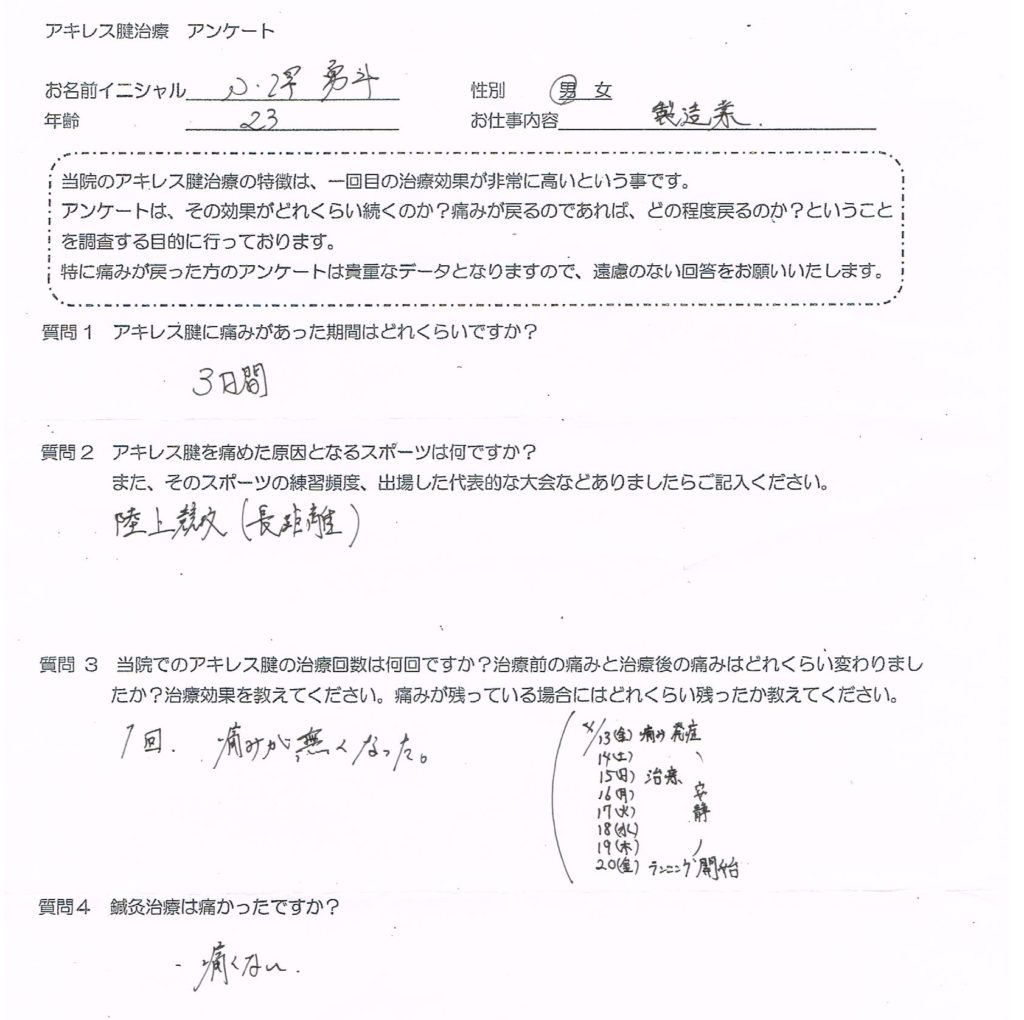 アキレス腱治療　アンケート
お名前イニシャル 小澤 勇斗 性別 男 女
年齢 23 お仕事内容 製造業.
当院のアキレス腱治療の特徴は、一回目の治療効果が非常に高いという事です。
アンケートは、その効果がどれくらい続くのか？痛みが戻るのであれば、どの程度戻るのか？ということ
を調査する目的に行っております。
特に痛みが戻った方のアンケートは貴重なデータとなりますので、遠慮のない回答をお願いいたします。
質問１　アキレス腱に痛みがあった期間はどれくらいですか？
3日間
質問２　アキレス腱を痛めた原因となるスポーツは何ですか？
また、そのスポーツの練習頻度、出場した代表的な大会などありましたらご記入ください。
陸上競技(長距離)
質問 ３　当院でのアキレス腱の治療回数は何回ですか？治療前の痛みと治療後の痛みはどれくらい変わりまし
たか？治療効果を教えてください。痛みが残っている場合にはどれくらい残ったか教えてください。
1回. 痛みが無くなった。
13(金) 痛み発症
14(土)
15(日) 治療
16(月) 安
17(火) 静
18(水)
19(木)
20(金) ランニング開始
質問４　鍼灸治療は痛かったですか？
痛くない.